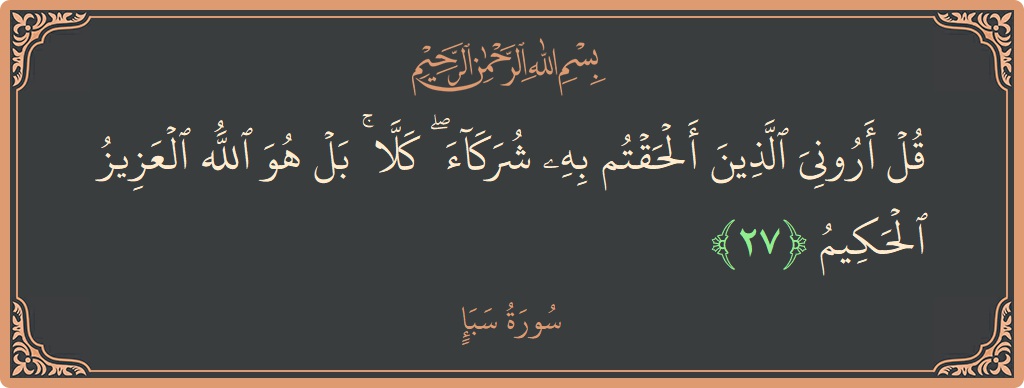 بِسْمِ اللَّهِ الرَّحْمَٰنِ الرَّحِيمِ
قُلْ أَرُونِىَ ٱلَّذِينَ أَلْحَقْتُم بِهِۦ شُرَكَآءَ ۖ كَلَّا ۚ بَلْ هُوَ ٱللَّهُ ٱلْعَزِيزُ
ٱلْحَكِيمُ ﴿٢٧﴾
سُورَةُ سَبَإٍ